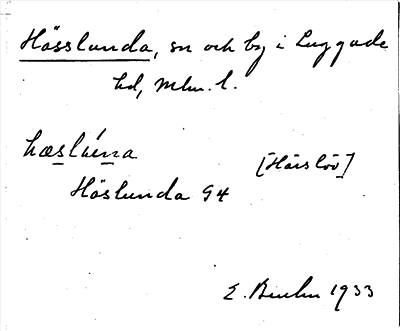 Hässlunda, sn och by i Luggude
hd, Mlm. l.
hæslúnna [Härslöv]
Häslunda G4
E. 1933